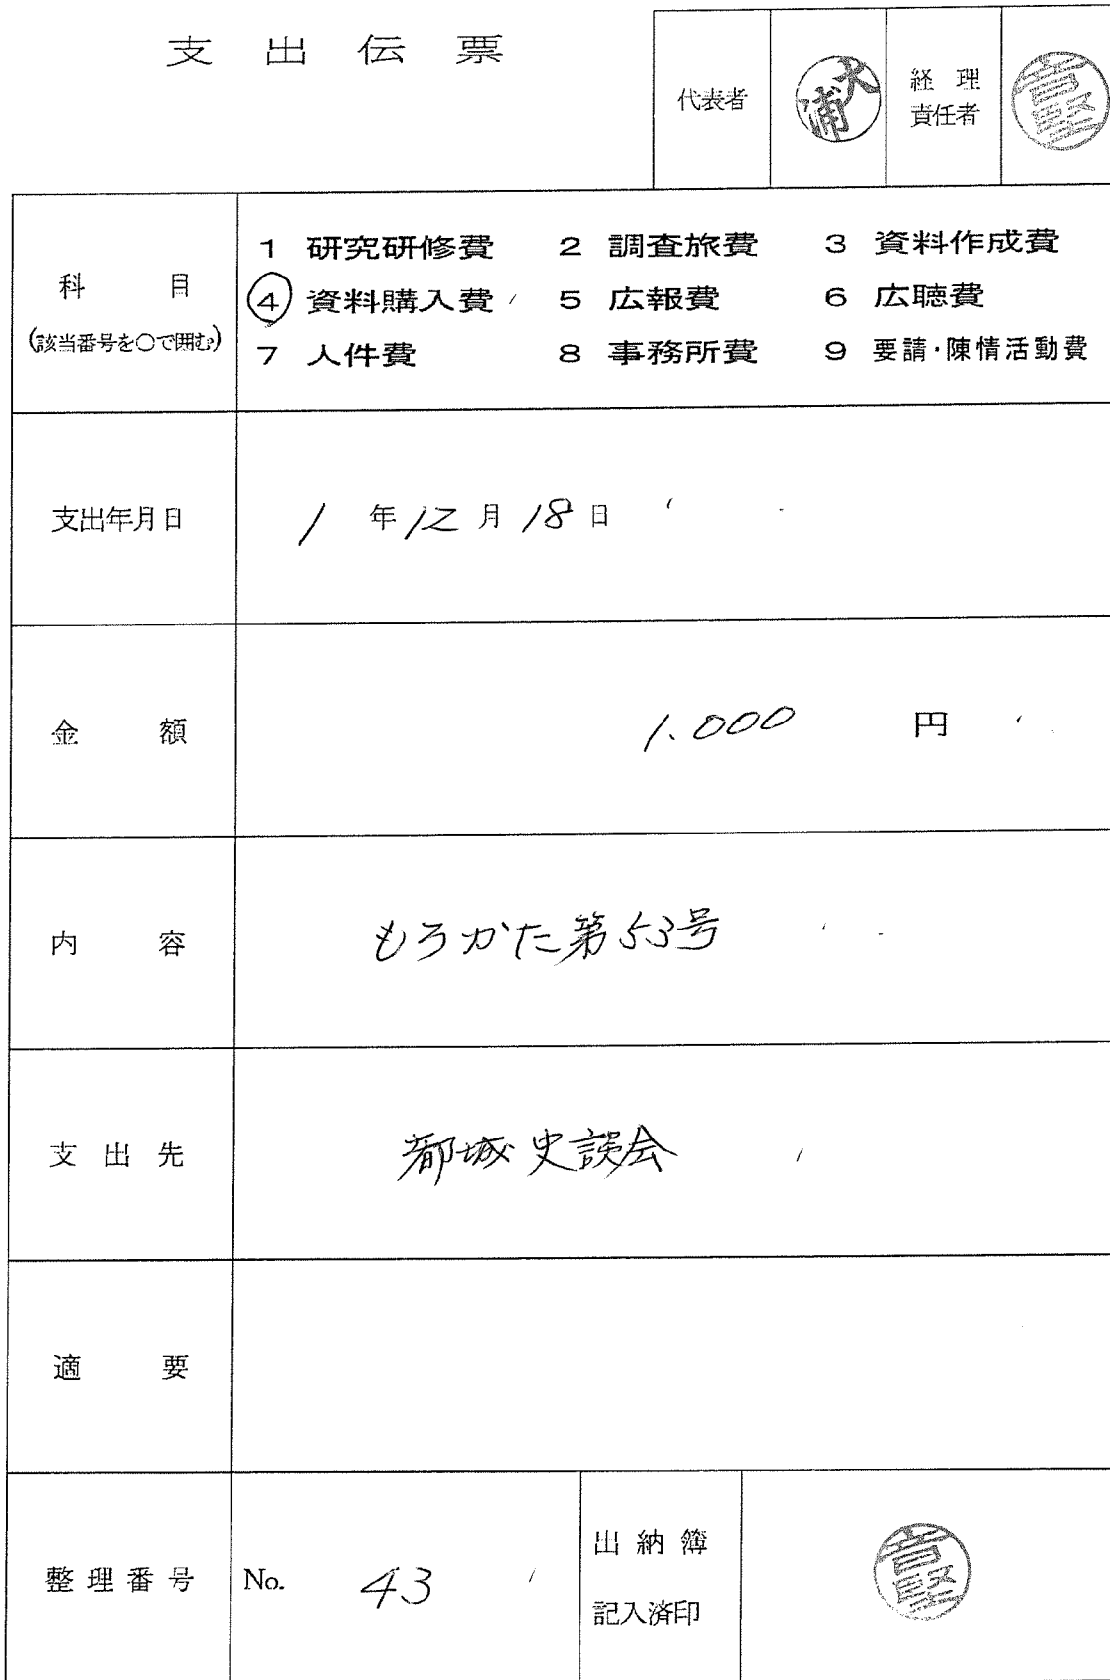 支出伝票
代表者
大浦
経理
責任者
科目
(該当番号を〇で囲む)
1 研究研修費 2 調査旅費 3 資料作成費
④ 資料購入費 5 広報費 6 広聴費
7 人件費 8 事務所費 9 要請・陳情活動費
支出年月日
1 年 12 月 18 日
金額
1.000 円
内容
もろかた第53号
支出先
都城史談会
適要
整理番号
No. 43
出納簿
記入済印